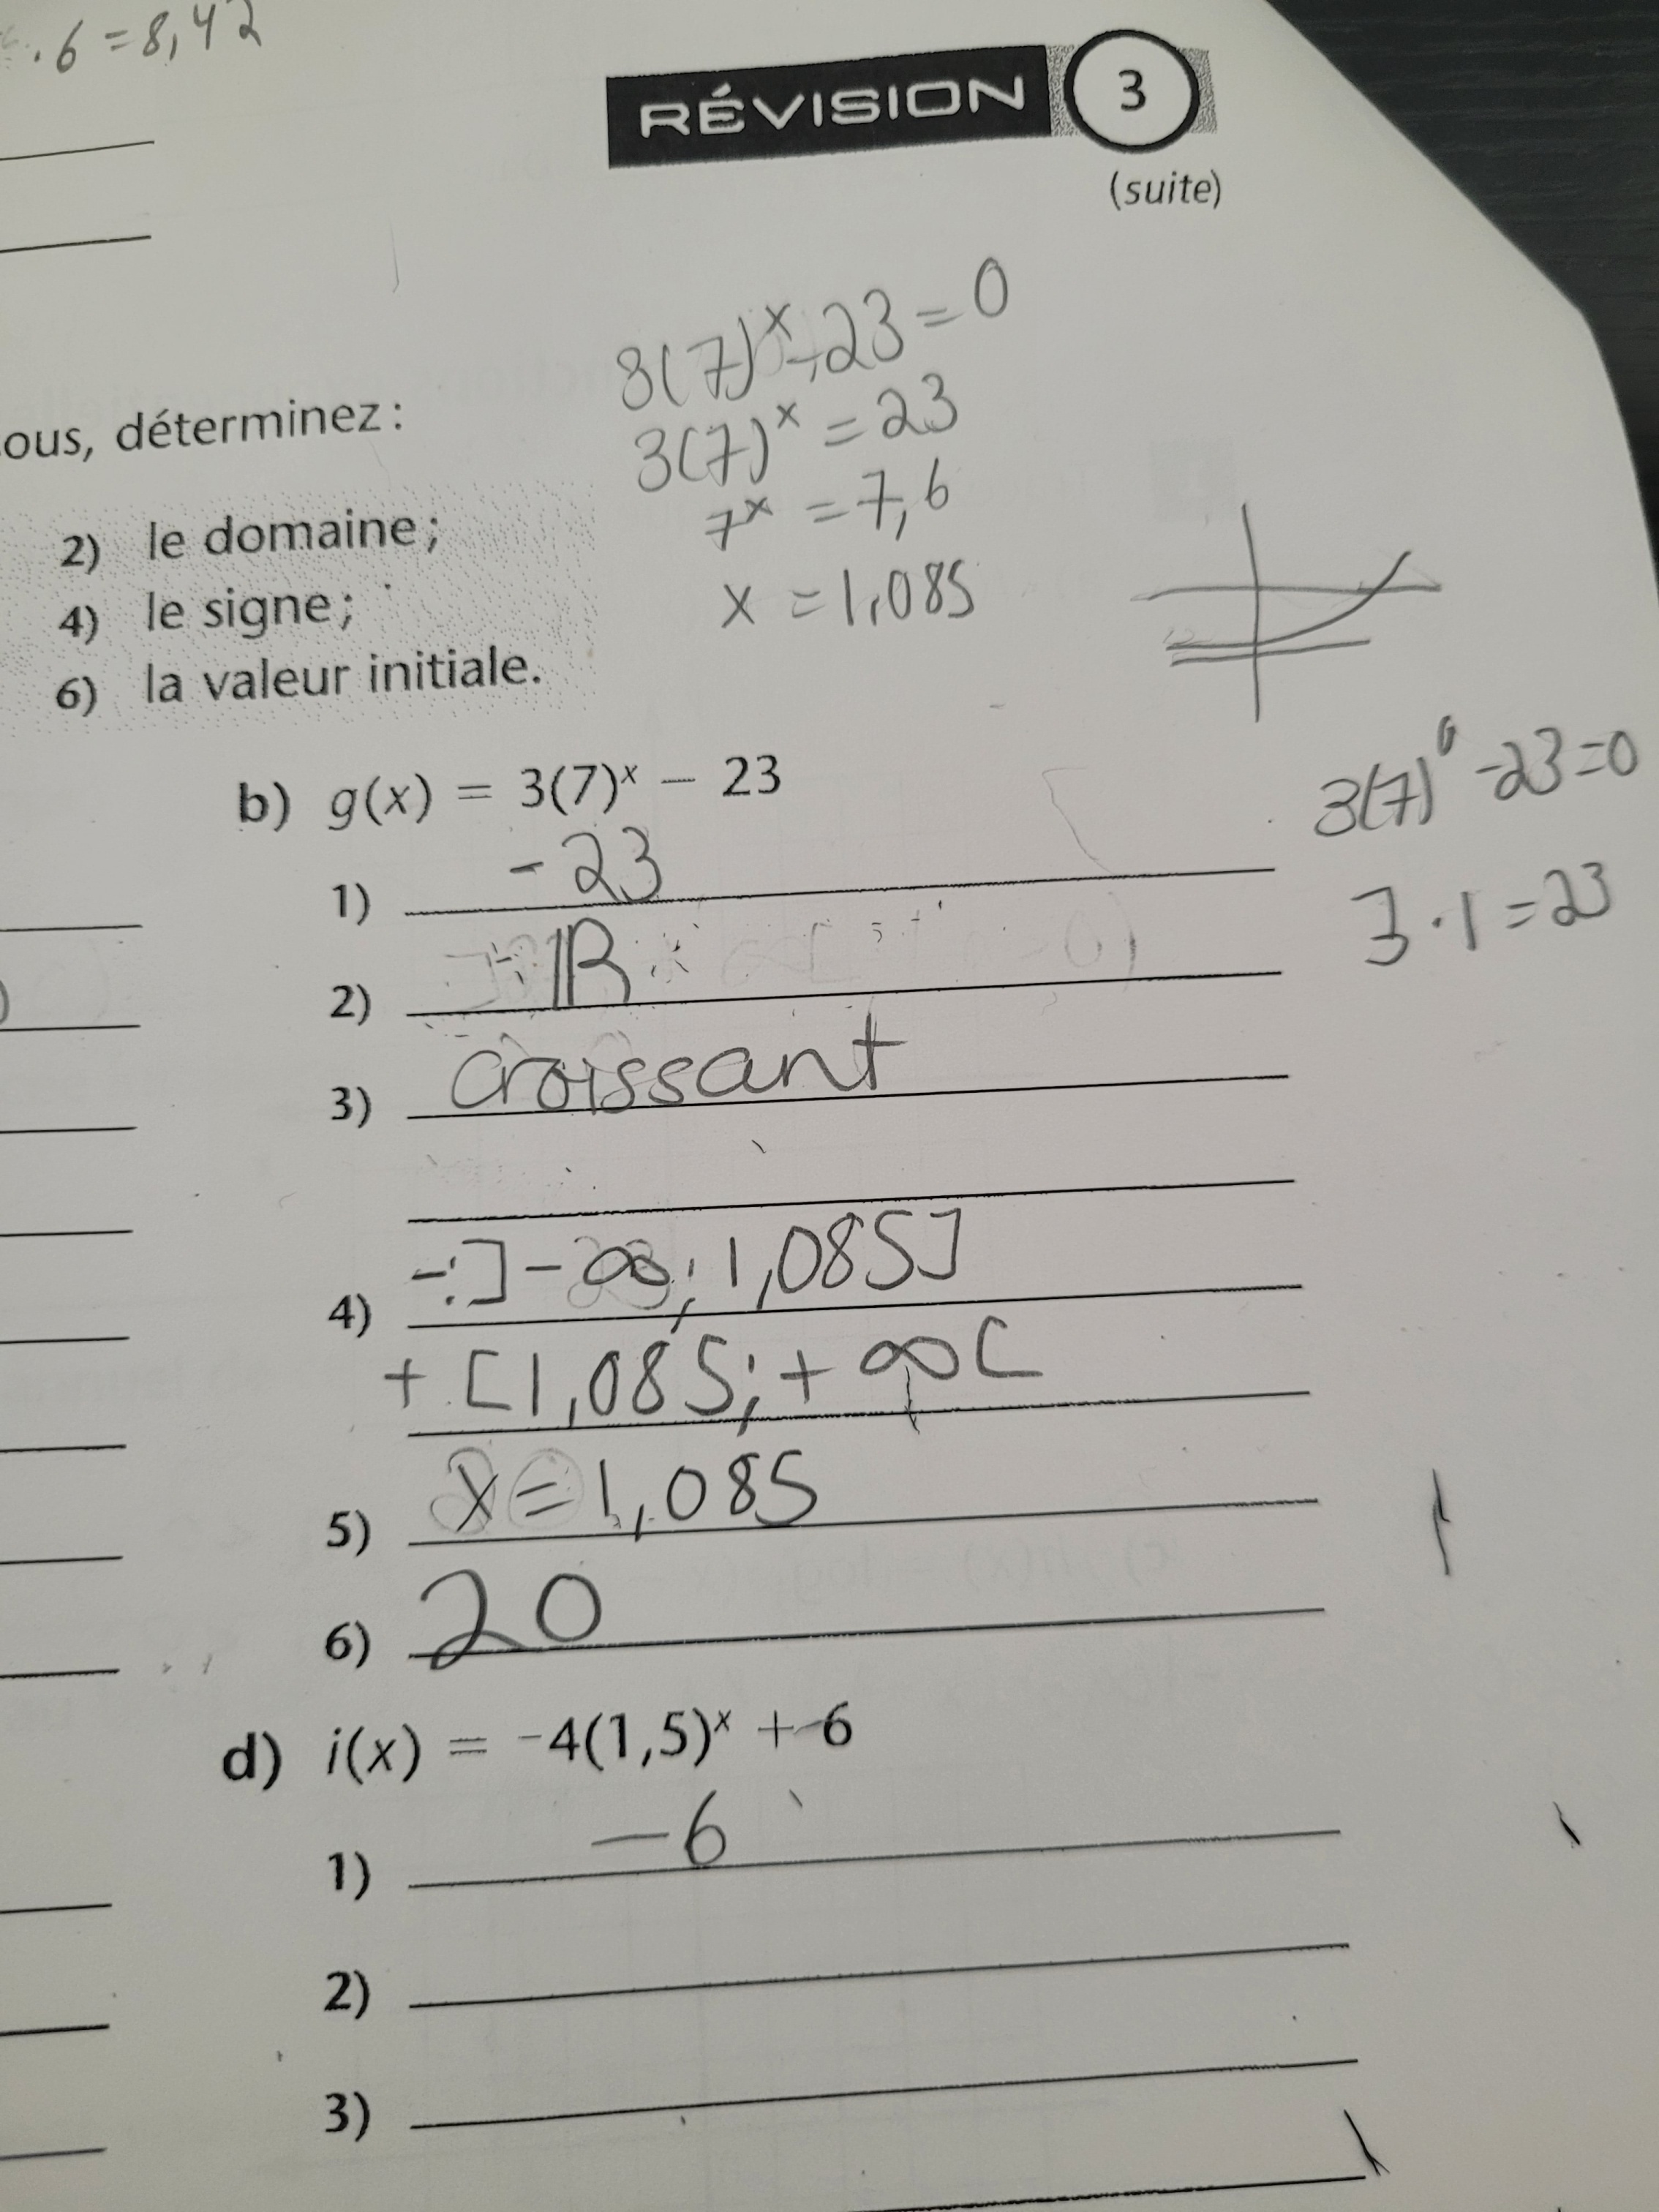 . 6 = 8,42
RÉVISION 3
(suite)
8(7)ˣ - 23 = 0
3(7)ˣ = 23
7ˣ = 7,6
x = 1,085
ous, déterminez :
2) le domaine ;
4) le signe ;
6) la valeur initiale.
b) g(x) = 3(7)ˣ − 23
3(7)⁰ - 23 = 0
3 · 1 = 23
1) - 23
2) ℝ
3) croissant
4) - : ] - ∞ ; 1,085]
+ [1,085 ; + ∞[
5) x = 1,085
6) 20
d) i(x) = -4(1,5)ˣ + 6
1) - 6
2)
3)